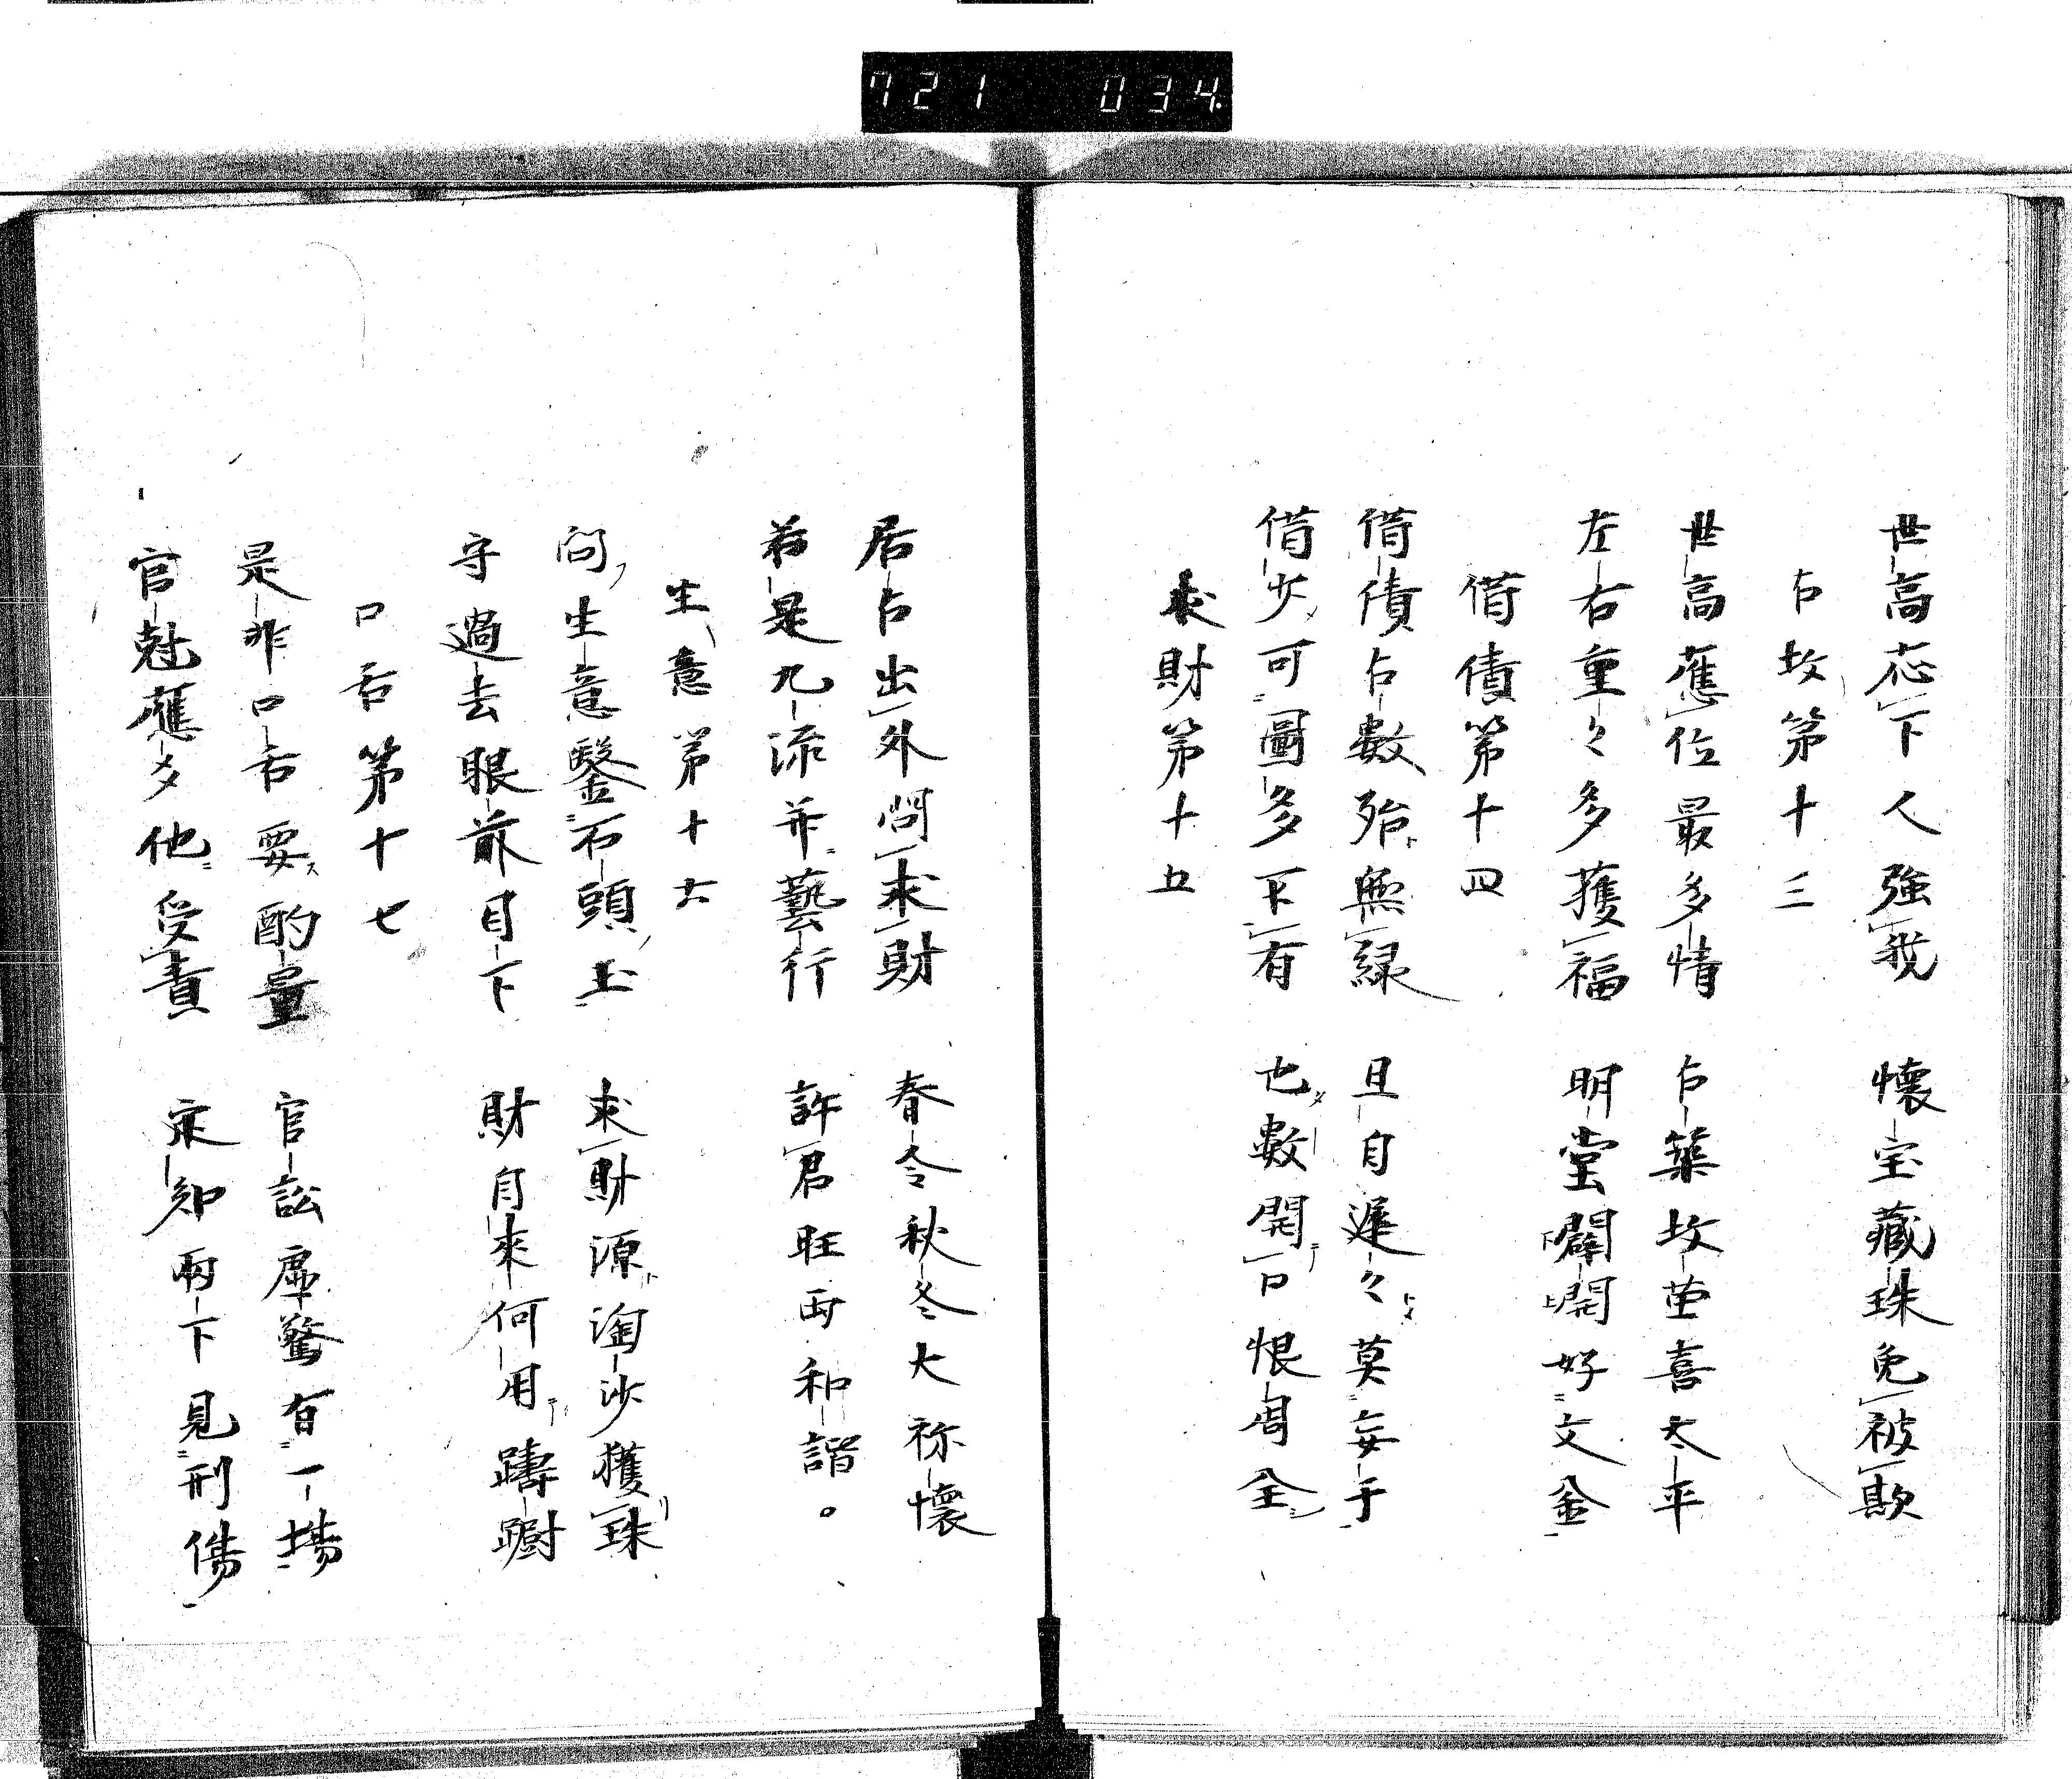 721 034
世高応下人強我 懐宝藏珠免被欺
占坟第十三
世高應位最多情 占築坟茔喜太平
左右重々多獲福 明堂闢開好文金
借債第十四
借債占數殆無緑 且自遲々莫妄于
借少可圖多下有 也數開口恨周全
求財第十五
居占出外問求財 春令秋冬大称懐
若是九流并藝行 許君旺西和諧。
生意第十六
問生意鑿石頭玉 求財源淘沙獲珠
守過去眼前目下 財自來何用躊躕
口舌第十七
是非口舌要酌量 官訟虚驚有一場
官尅應多他受責 求知兩下見刑傷